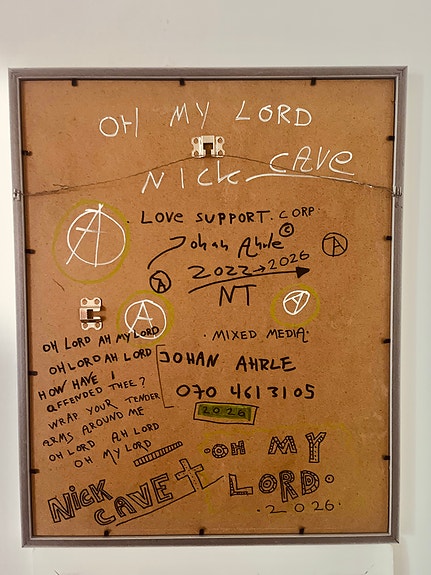 OH MY LORD
NICK CAVE
· LOVE SUPPORT. CORP ·
Johan Ahrle ©
A
A
A
2022→2026
NT
A
A
· MIXED MEDIA ·
OH LORD AH MY LORD
OH LORD AH LORD
HOW HAVE I
OFFENDED THEE?
WRAP YOUR TENDER
ARMS AROUND ME
OH LORD AH LORD
OH MY LORD
JOHAN AHRLE
070 4613105
2026
NICK
CAVE
· OH MY
LORD ·
· 2026 ·